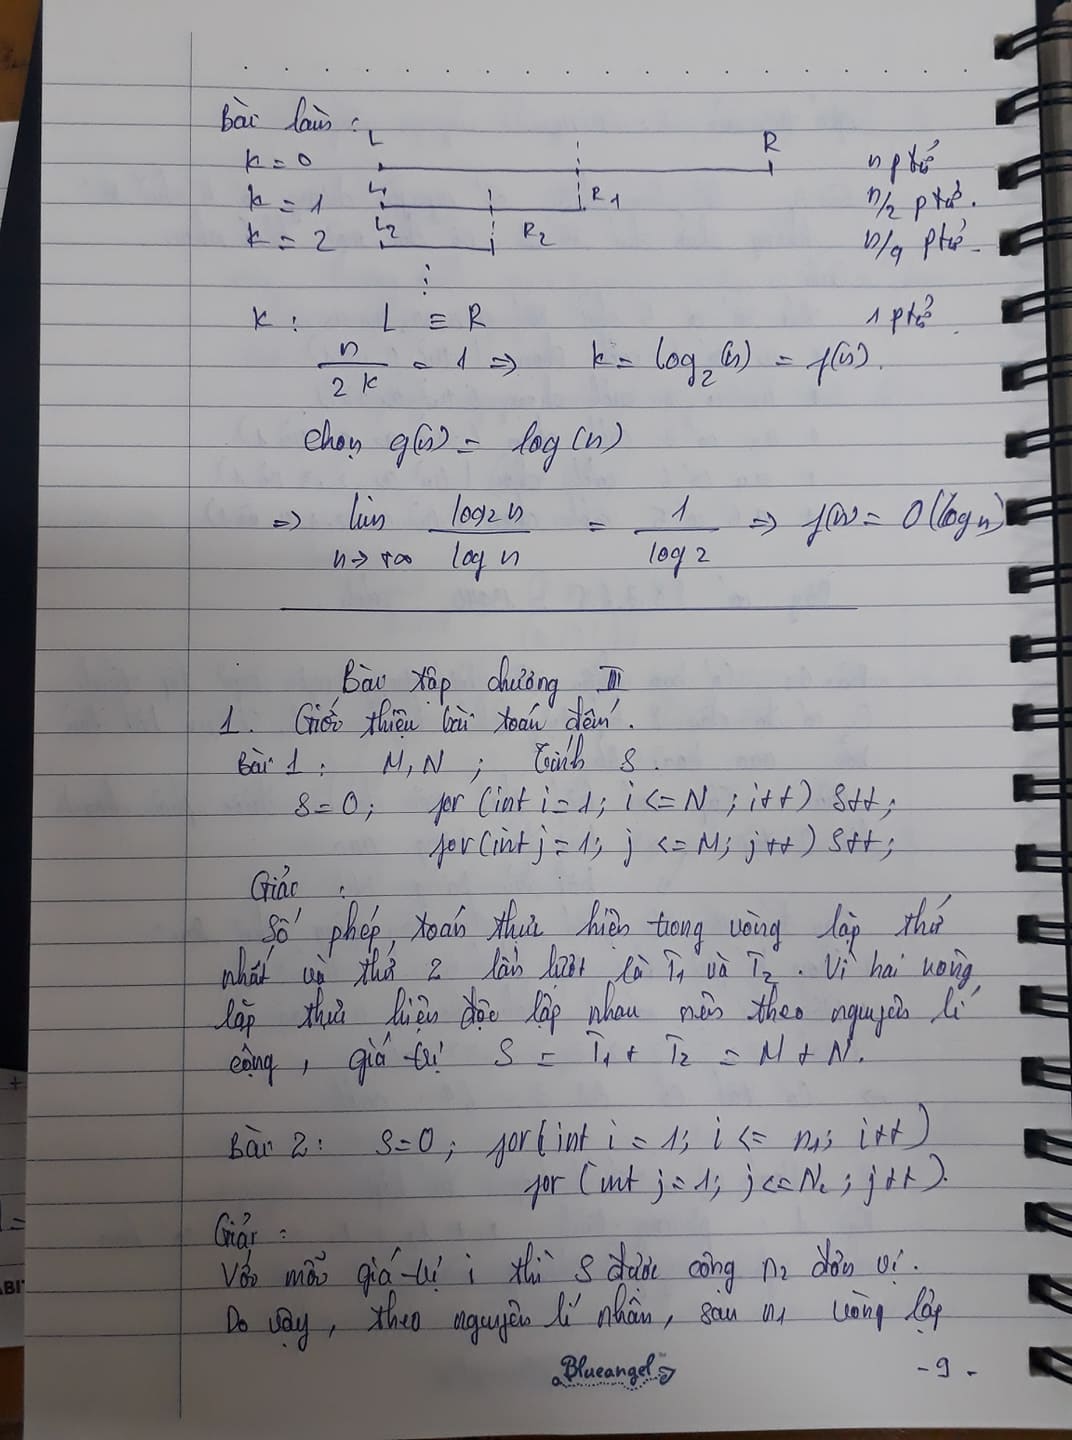 Bài làm :
k = 0 L R n ptử
k = 1 L1 R1 n/2 ptử.
k = 2 L2 R2 n/4 ptử
⋮
k : L ≡ R 1 ptử
n / 2^k = 1 => k = log₂(n) = f(n).
chọn g(n) = log(n)
=> lim n→+∞ log₂n / log n = 1 / log 2 => f(n) = O(log n)
Bài tập chương III
1. Giới thiệu bài toán đếm.
Bài 1 : M, N ; Tính S.
S = 0; for (int i = 1; i <= N ; i++) S++;
for (int j = 1; j <= M; j++) S++;
Giải :
Số phép toán thực hiện trong vòng lặp thứ
nhất và thứ 2 lần lượt là T1 và T2. Vì hai vòng
lặp thực hiện độc lập nhau nên theo nguyên lí
cộng, giá trị S = T1 + T2 = M + N.
Bài 2 : S = 0; for (int i = 1; i <= n1; i++)
for (int j = 1; j <= N2; j++).
Giải :
Với mỗi giá trị i thì S được cộng n2 đơn vị.
Do vậy, theo nguyên lí nhân, sau n1 vòng lặp
Blueangel
- 9 -
+
=
ABI